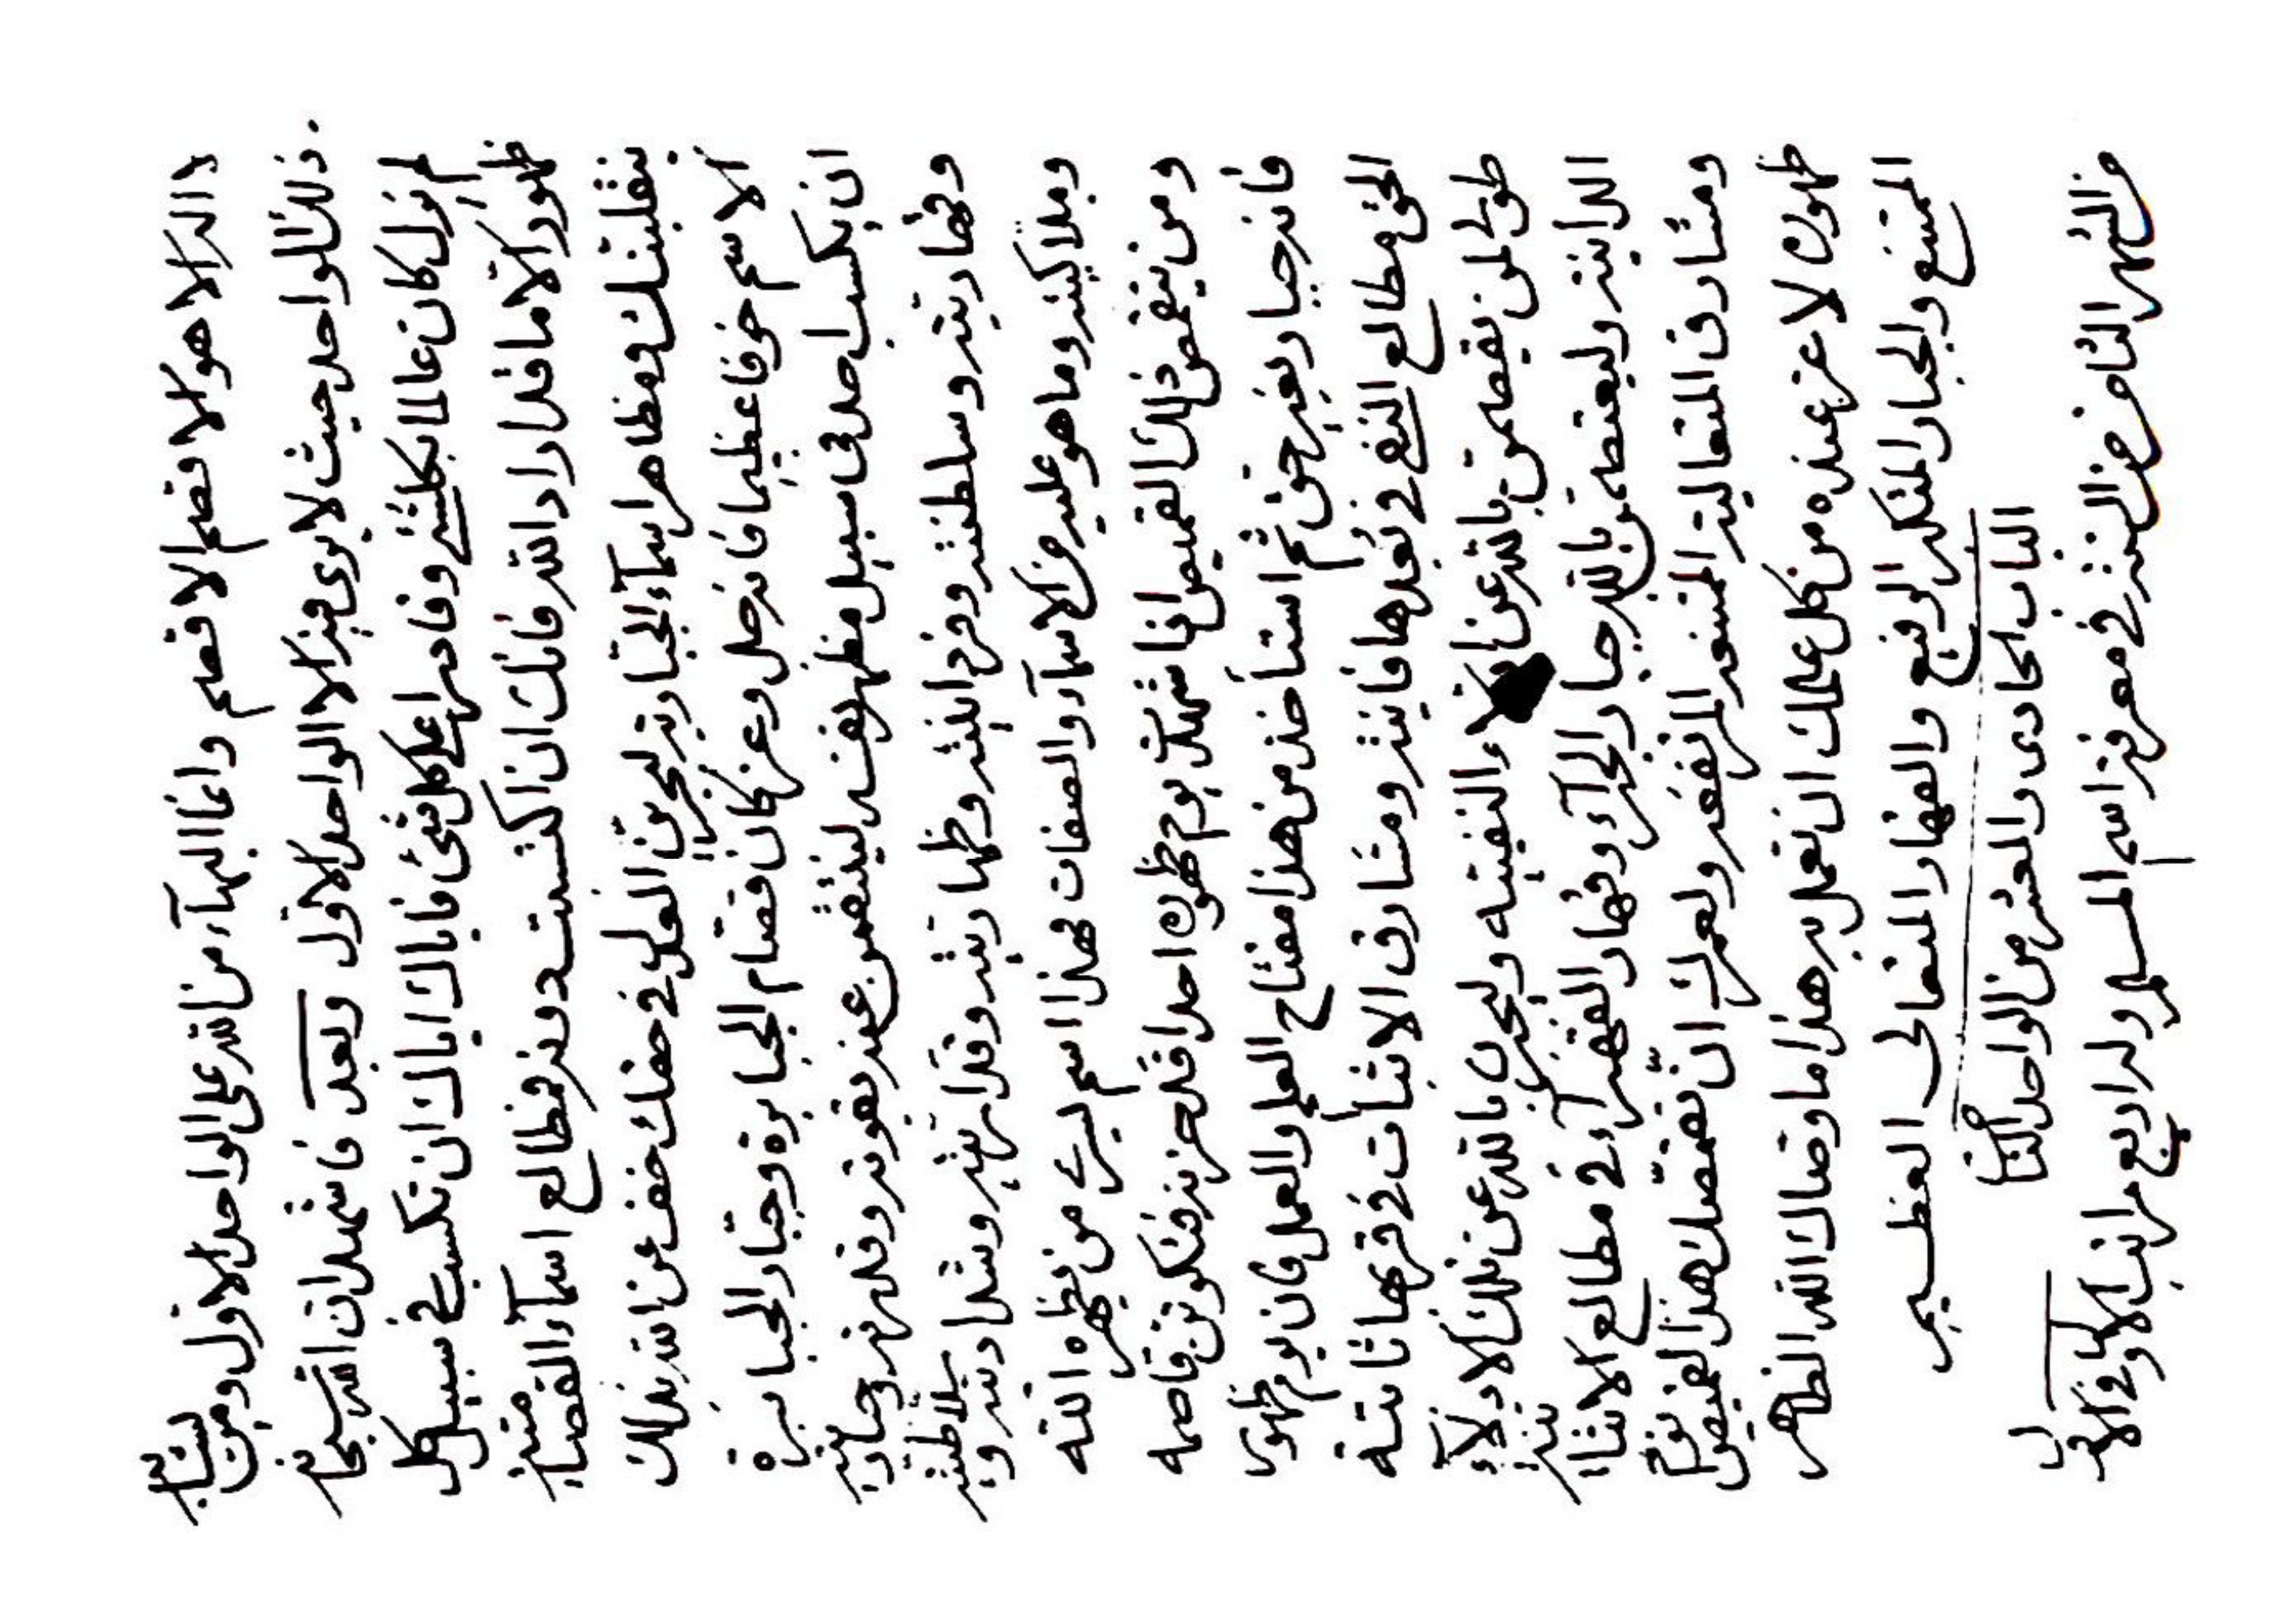 لا اله الا هو الاقصم الاقصم وانما البهآء من الله على الواحد الاول ومن يشابه
ذلك الواحد حيث لا يرى فيه الا الواحد الاول وبعد فاشهد ان الله سبحانه
لم يزل كان عالما بكلشئ وقادرا على كل شئ فاياك اياك ان تكسب في سبيل كل
ظهور الا ما قد اراد الله فانك ان اكتسبت دونه فمطالع اسمآء القصامية
تنقلبنك ومظاهر اسمآء الجبارية لتجرين العلو في حقك خف عن الله بذلك
الاسم خوفا عظيما فانه جل وعز كان قصام الجبابرة وجبار الجبابرة
ان يكسب احد في سبيل مظهر نفسه لينتقمن عنه بقوته وقدرته وجباريته
وقهاريته وسلطنته وفردانيته وظهاريته وشداديته
وملاكيته وما هو عليه من الاسمآء والصفات فهذا اسم من يظهره الله
ومن يتقمص ذلك القميص اذا شهدت يوم ظهوره احدا قد حزنه فتكونن قاصمه
فانه جبار بغير حق ثم استأخذ من هذا مفتاح العلم والعمل فان يوم ظهور
الحق مطالع النفي في بعدها فانية ومشارق الاثبات في قربها ثابتة
طوبى لمن يقصمن بالله عن النفيية بالله عن تلك الادلآء
الدانية وليعتصمن بالله جبار الجبرآء وقهار القهرآء في مطالع الاثباتية
ومشارق المتعالية الممتنعة المرتفعة ولعمرك ان تقمصك هذا القميص يوم
ظهوره لا عز عنده من كل عملك ان تعمل به هذا ما وصاك الله الظاهر
الممتنع والجبار المتكبر الرفيع والقهار المتعالى العظيم
الباب الحادى والعشر من الواحد الثا
من الشهر الثامن من السنة في معرفة اسم وله اربع مراتب الاول في الاول